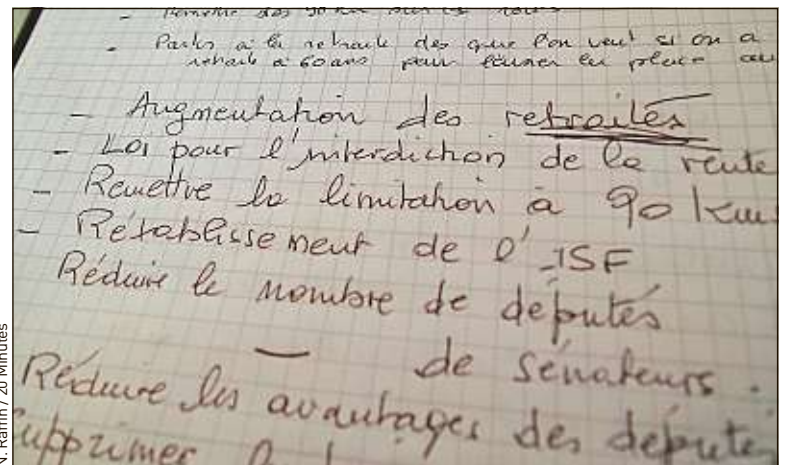 - Remettre des 90 km sur les
- Partir à la retraite dès que l'on veut si on a
retraite à 60 ans pour laisser la place au
- Augmentation des retraités
- Loi pour l'interdiction de la vente
- Remettre la limitation à 90 km
- Rétablissement de l'ISF
Réduire le nombre de députés
— de sénateurs.
Réduire les avantages des députés
Supprimer
N. Raffin / 20 Minutes